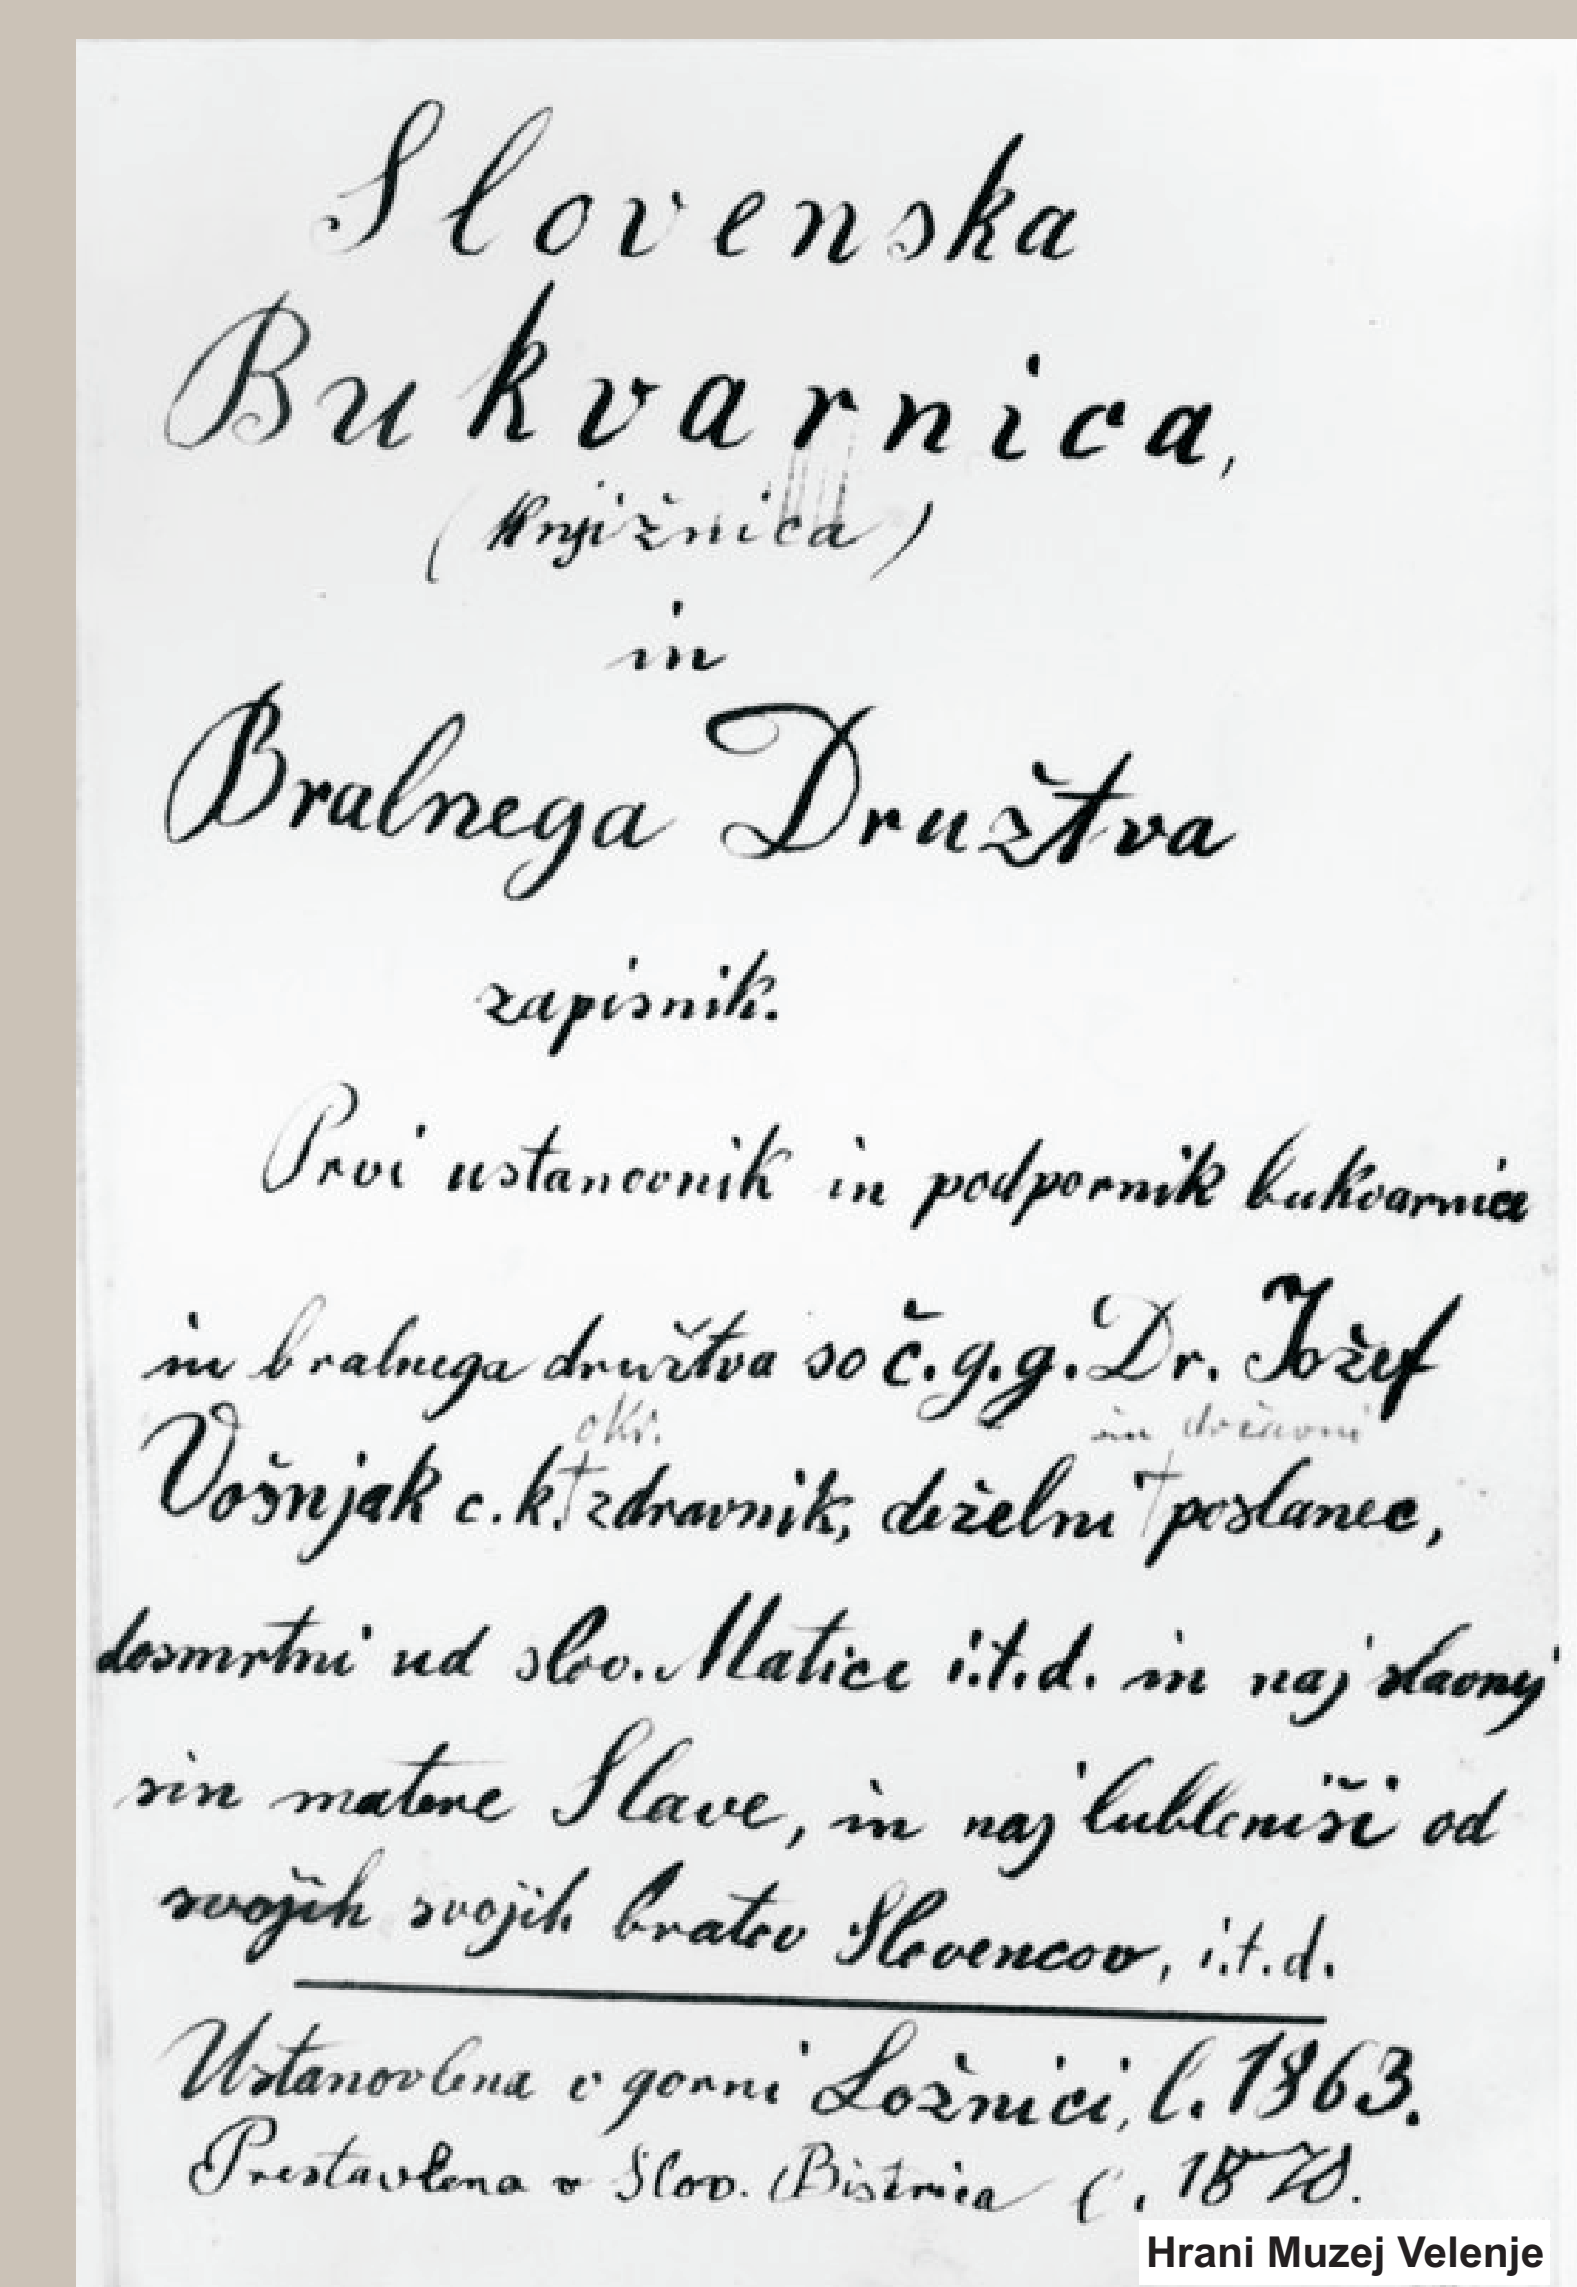 Slovenska
Bukvarnica,
(Knjižnica)
in
Bralnega Družtva
zapisnik.
Prvi ustanovnik in podpornik bukvarnice
in bralnega družtva so č.g.g. Dr. Jožef
okr. in državni
Vošnjak c.k. zdravnik, deželni poslanec,
dosmrtni ud slov. Matice i.t.d. in naj slavnij
sin matere Slave, in naj lubleniši od
svojih svojih bratov Slovencov, i.t.d.
Ustanovlena v gorni Ložnici, l. 1863.
Prestavlena v Slov. Bistrica l. 1870.
Hrani Muzej Velenje